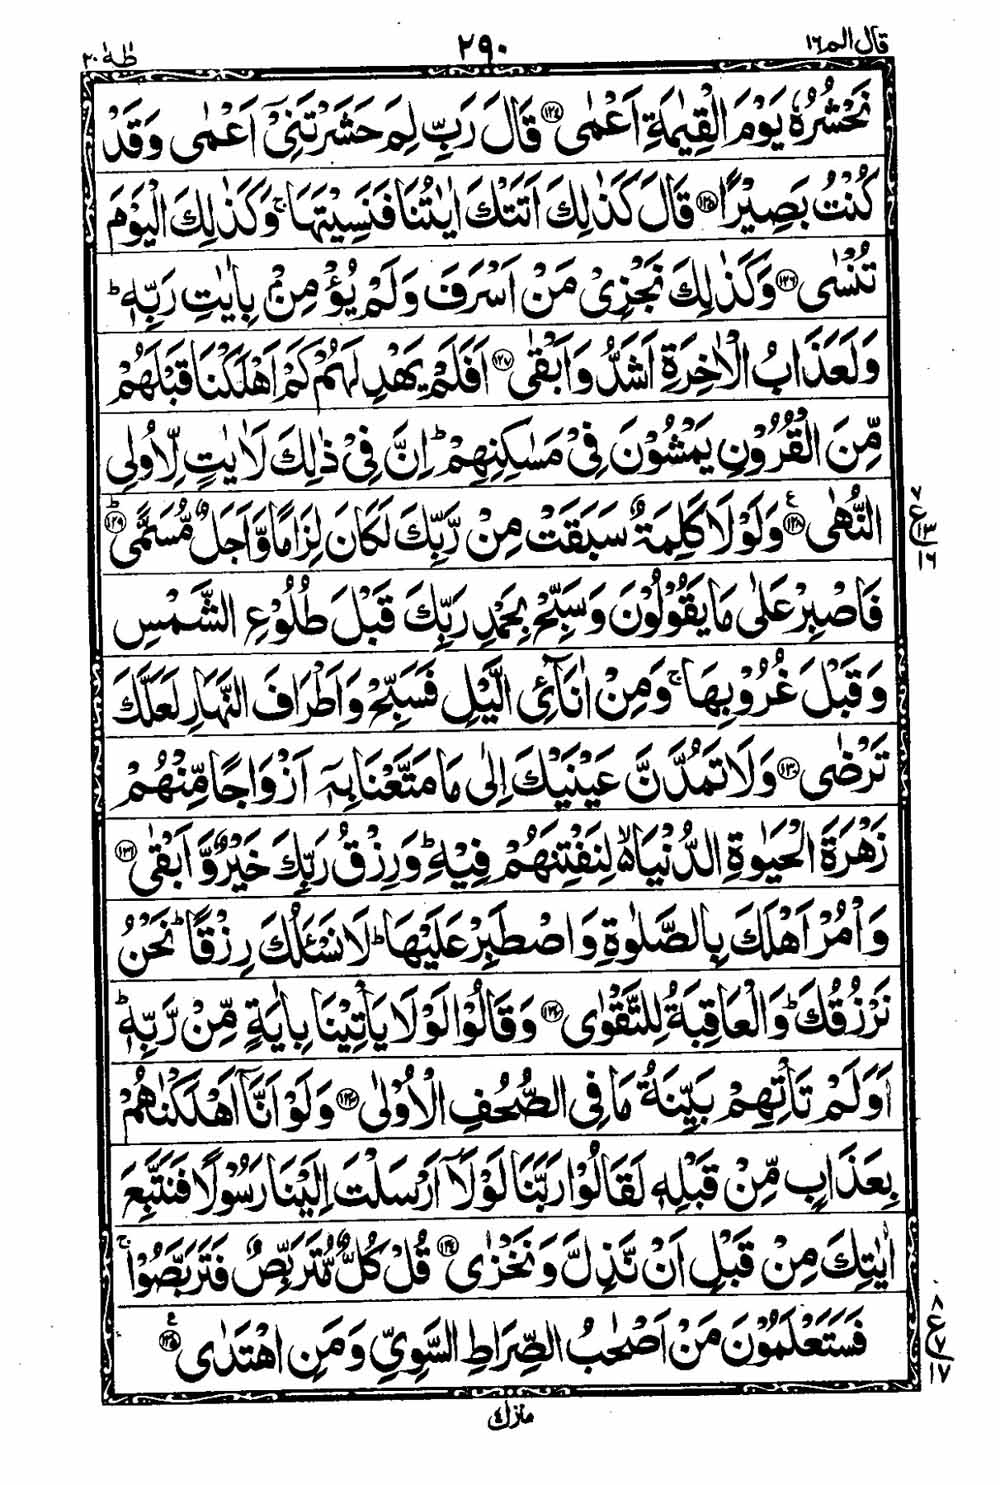 قال الم ١٦ ٢٩٠ طٰهٰ ٢٠
نَحْشُرُهٗ يَوْمَ الْقِيٰمَةِ اَعْمٰى ﴿١٢٤﴾ قَالَ رَبِّ لِمَ حَشَرْتَنِىْٓ اَعْمٰى وَقَدْ
كُنْتُ بَصِيْرًا ﴿١٢٥﴾ قَالَ كَذٰلِكَ اَتَتْكَ اٰيٰتُنَا فَنَسِيْتَهَا ۚ وَكَذٰلِكَ الْيَوْمَ
تُنْسٰى ﴿١٢٦﴾ وَكَذٰلِكَ نَجْزِىْ مَنْ اَسْرَفَ وَلَمْ يُؤْمِنْۢ بِاٰيٰتِ رَبِّهٖ ؕ
وَلَعَذَابُ الْاٰخِرَةِ اَشَدُّ وَاَبْقٰى ﴿١٢٧﴾ اَفَلَمْ يَهْدِ لَهُمْ كَمْ اَهْلَكْنَا قَبْلَهُمْ
مِّنَ الْقُرُوْنِ يَمْشُوْنَ فِىْ مَسٰكِنِهِمْ ؕ اِنَّ فِىْ ذٰلِكَ لَاٰيٰتٍ لِّاُولِى
النُّهٰى ﴿١٢٨﴾ ع وَلَوْلَا كَلِمَةٌ سَبَقَتْ مِنْ رَّبِّكَ لَكَانَ لِزَامًا وَّاَجَلٌ مُّسَمًّى ﴿١٢٩﴾ ؕ
٧ ع ١٣ ١٦
فَاصْبِرْ عَلٰى مَا يَقُوْلُوْنَ وَسَبِّحْ بِحَمْدِ رَبِّكَ قَبْلَ طُلُوْعِ الشَّمْسِ
وَقَبْلَ غُرُوْبِهَا ۚ وَمِنْ اٰنَآئِ الَّيْلِ فَسَبِّحْ وَاَطْرَافَ النَّهَارِ لَعَلَّكَ
تَرْضٰى ﴿١٣٠﴾ وَلَا تَمُدَّنَّ عَيْنَيْكَ اِلٰى مَا مَتَّعْنَا بِهٖٓ اَزْوَاجًا مِّنْهُمْ
زَهْرَةَ الْحَيٰوةِ الدُّنْيَا ۙ لِنَفْتِنَهُمْ فِيْهِ ؕ وَرِزْقُ رَبِّكَ خَيْرٌ وَّاَبْقٰى ﴿١٣١﴾
وَاْمُرْ اَهْلَكَ بِالصَّلٰوةِ وَاصْطَبِرْ عَلَيْهَا ؕ لَا نَسْئَلُكَ رِزْقًا ؕ نَحْنُ
نَرْزُقُكَ ؕ وَالْعَاقِبَةُ لِلتَّقْوٰى ﴿١٣٢﴾ وَقَالُوْا لَوْلَا يَاْتِيْنَا بِاٰيَةٍ مِّنْ رَّبِّهٖ ؕ
اَوَلَمْ تَاْتِهِمْ بَيِّنَةُ مَا فِى الصُّحُفِ الْاُوْلٰى ﴿١٣٣﴾ وَلَوْ اَنَّآ اَهْلَكْنٰهُمْ
بِعَذَابٍ مِّنْ قَبْلِهٖ لَقَالُوْا رَبَّنَا لَوْلَآ اَرْسَلْتَ اِلَيْنَا رَسُوْلًا فَنَتَّبِعَ
اٰيٰتِكَ مِنْ قَبْلِ اَنْ نَّذِلَّ وَنَخْزٰى ﴿١٣٤﴾ قُلْ كُلٌّ مُّتَرَبِّصٌ فَتَرَبَّصُوْا ۚ
فَسَتَعْلَمُوْنَ مَنْ اَصْحٰبُ الصِّرَاطِ السَّوِىِّ وَمَنِ اهْتَدٰى ﴿١٣٥﴾ ع
٨ ع ٧ ١٧
منزل ٤